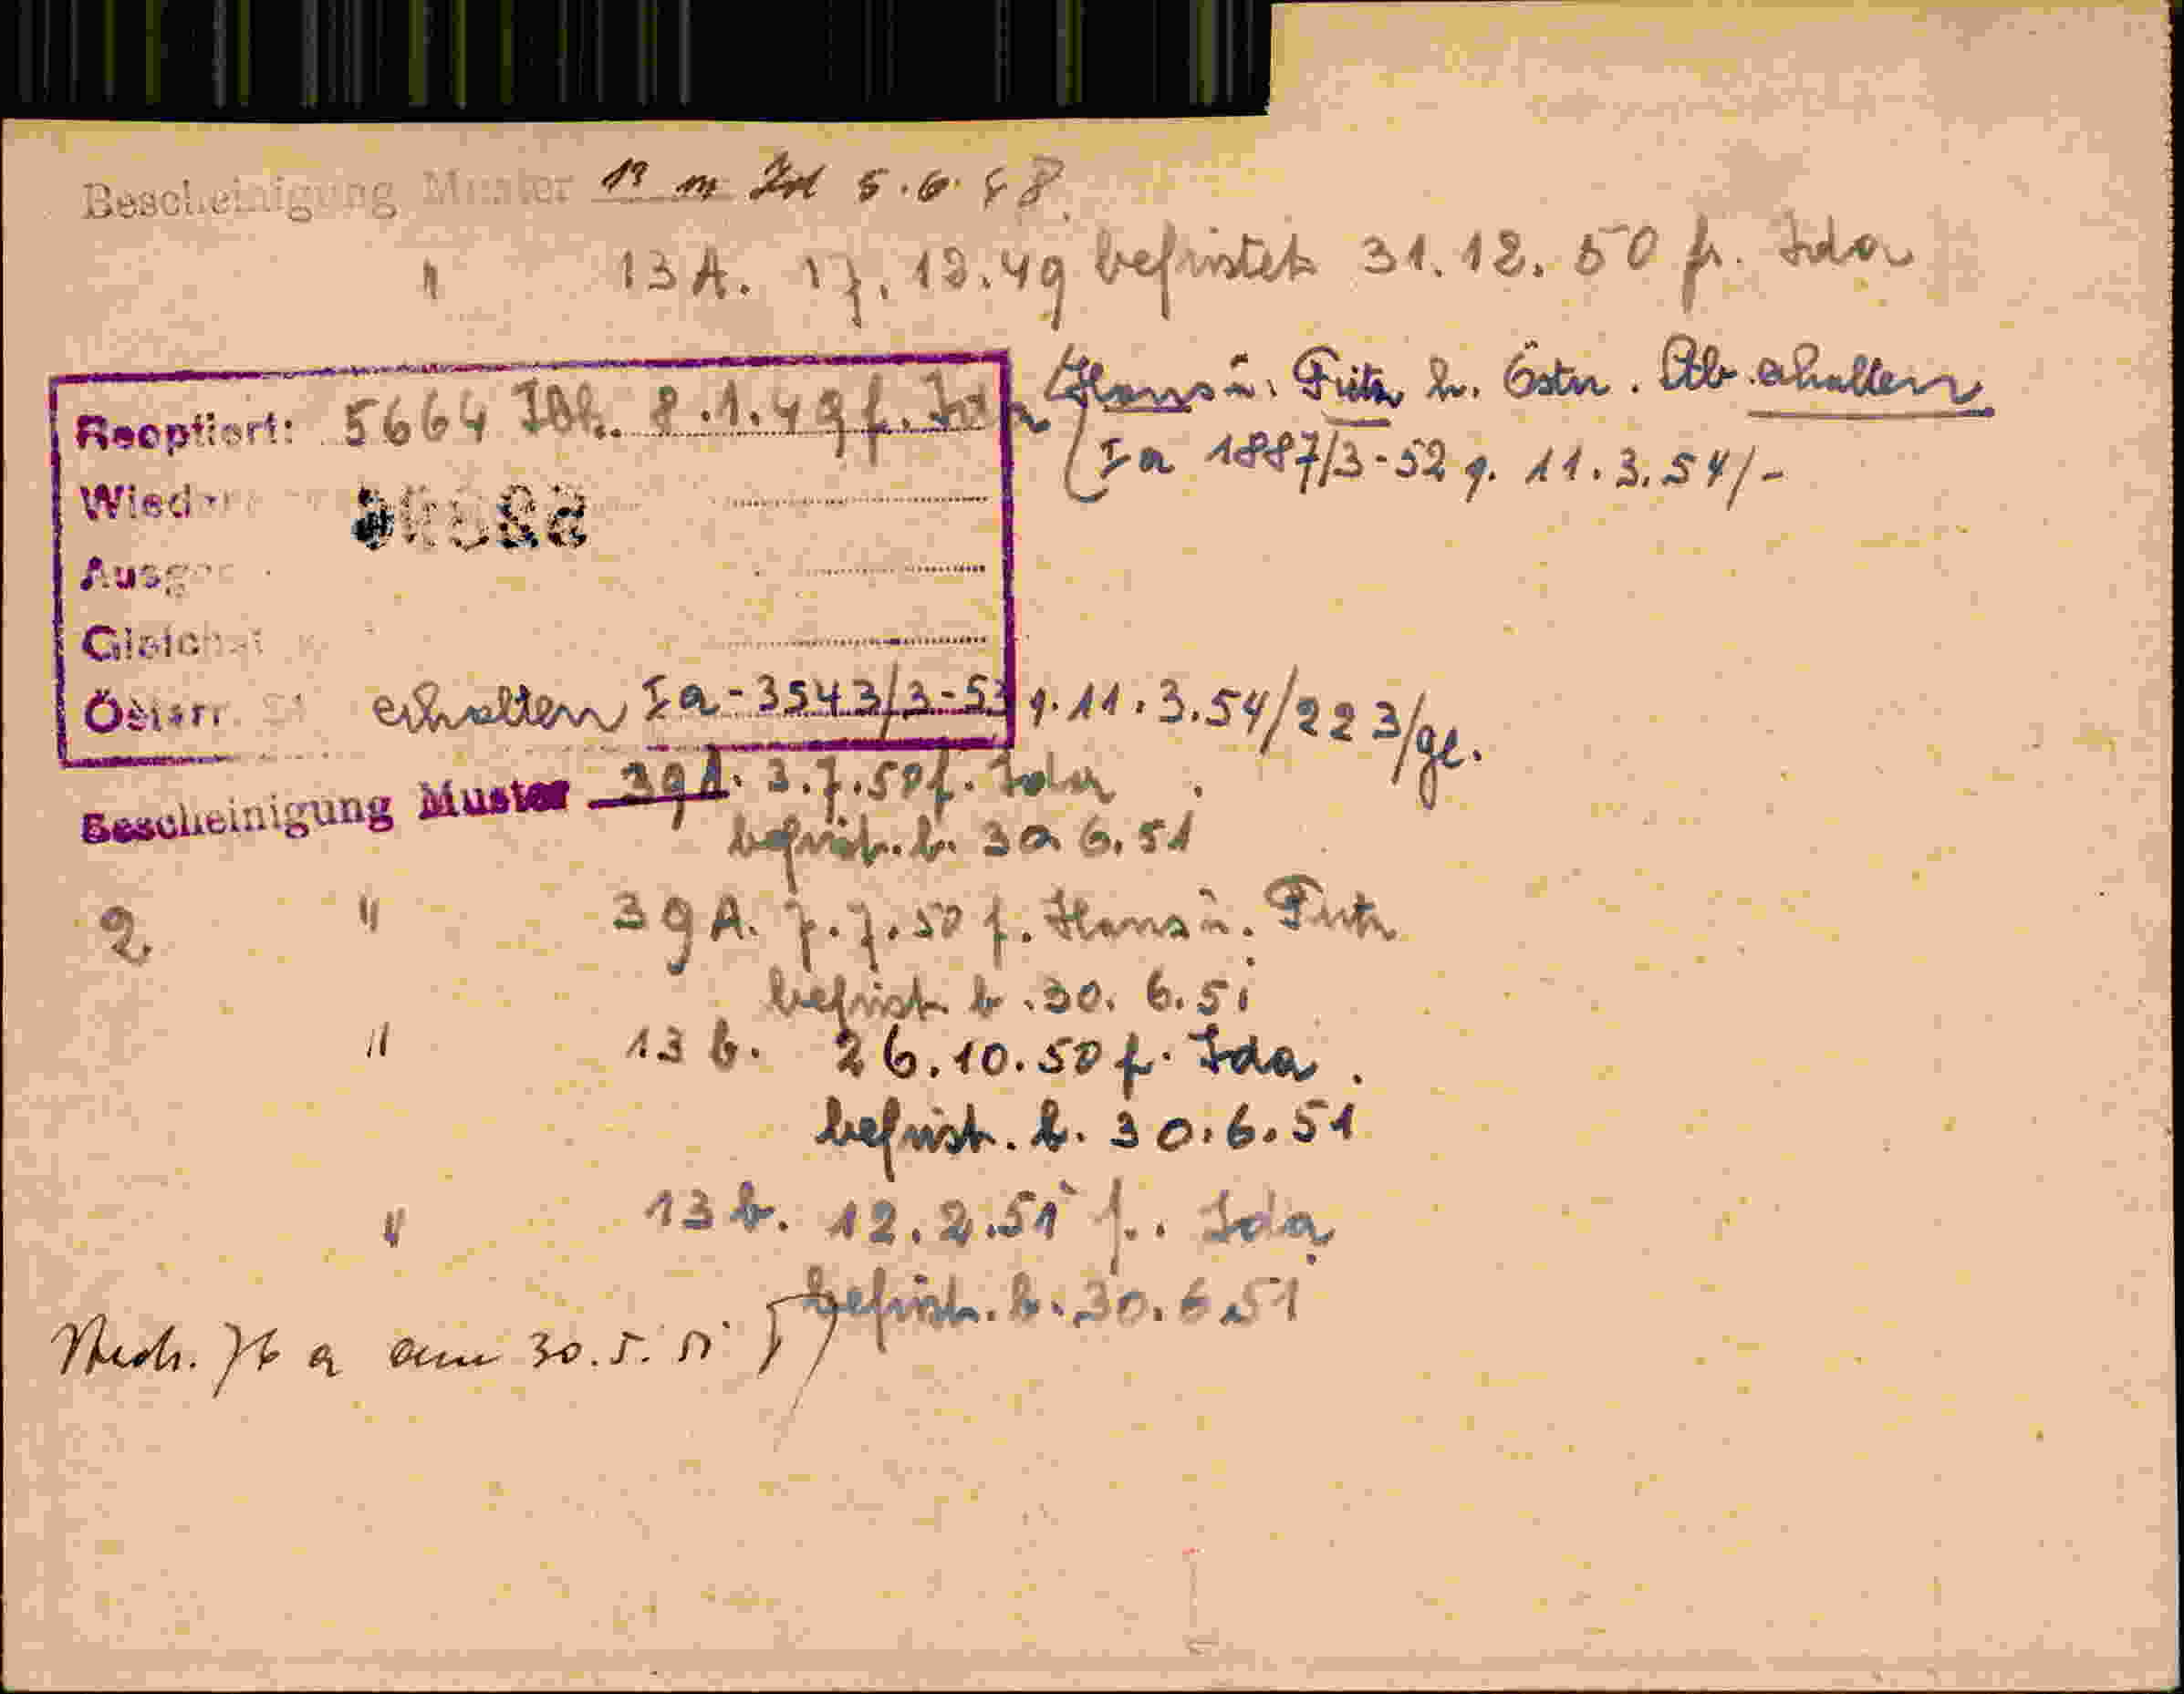 Bescheinigung Muster 19 m 5.6.48
" 13 A. 17.12.49 befristet 31.12.50 f. Ida
Hans u. Fritz h. Östr. Stb. erhalten
Ia 1887/3-52 g. 11.3.54/-
Reoptiert: 5664 8.1.49 f. Ida
Wieder
Ausge
Gleich
Österr St erhalten Ia-3543/3-53 g. 11.3.54/223/ge.
Bescheinigung Muster 39A. 3.7.50 f. Ida
befrist. b. 30 6.51
2. " 39 A. 7.7.50 f. Hans u. Fritz
befrist. b. 30. 6.51
" 13 b. 26.10.50 f. Ida.
befrist. b. 30.6.51
" 13 b. 12.2.51 f. Ida
befrist. b. 30.6.51
a am 30.5.51